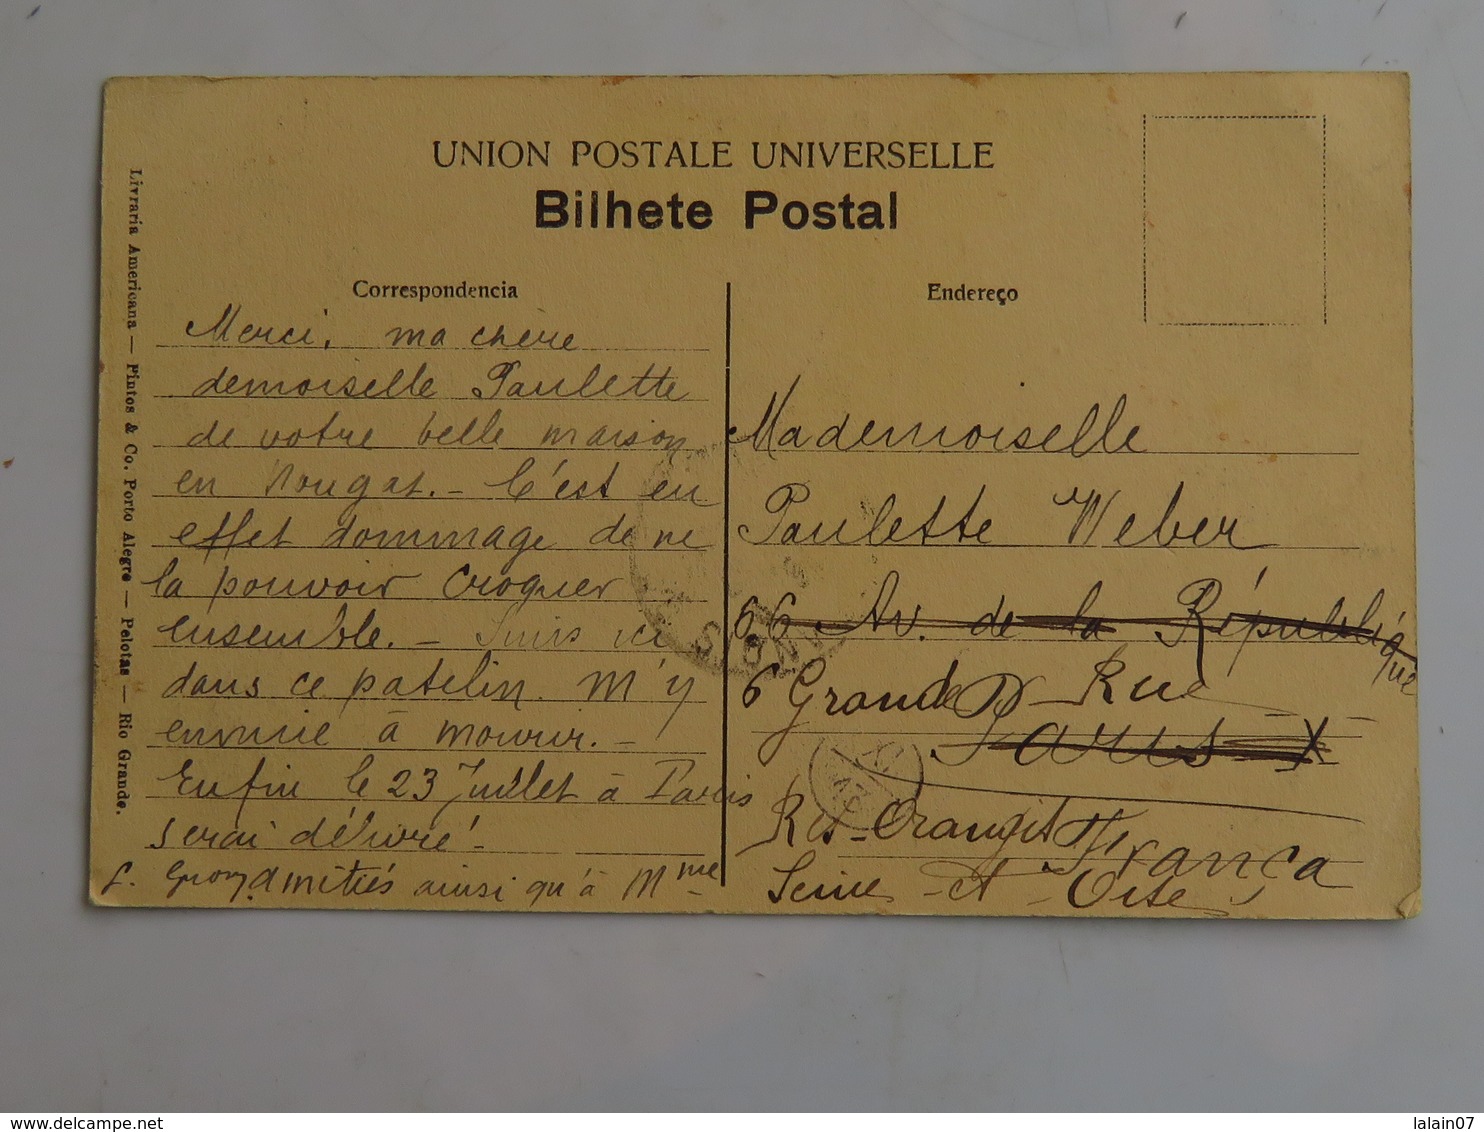 UNION POSTALE UNIVERSELLE
Bilhete Postal
Livraria Americana — Pintos & Co. Porto Alegre — Pelotas — Rio Grande.
Correspondencia
Merci, ma chère
demoiselle Paulette
de votre belle maison
en Nougat. – C'est en
effet dommage de ne
la pouvoir croquer
ensemble. – Suis ici
dans ce patelin. M'y
ennuie à mourir. –
Enfin le 23 Juillet à Paris
serai délivré!
ainsi qu'à Mme
Endereço
Mademoiselle
Paulette Weber
66 Av. de la République
6 Grande Rue
Paris X
Ris-Orangis França
Seine-et-Oise
lalain07